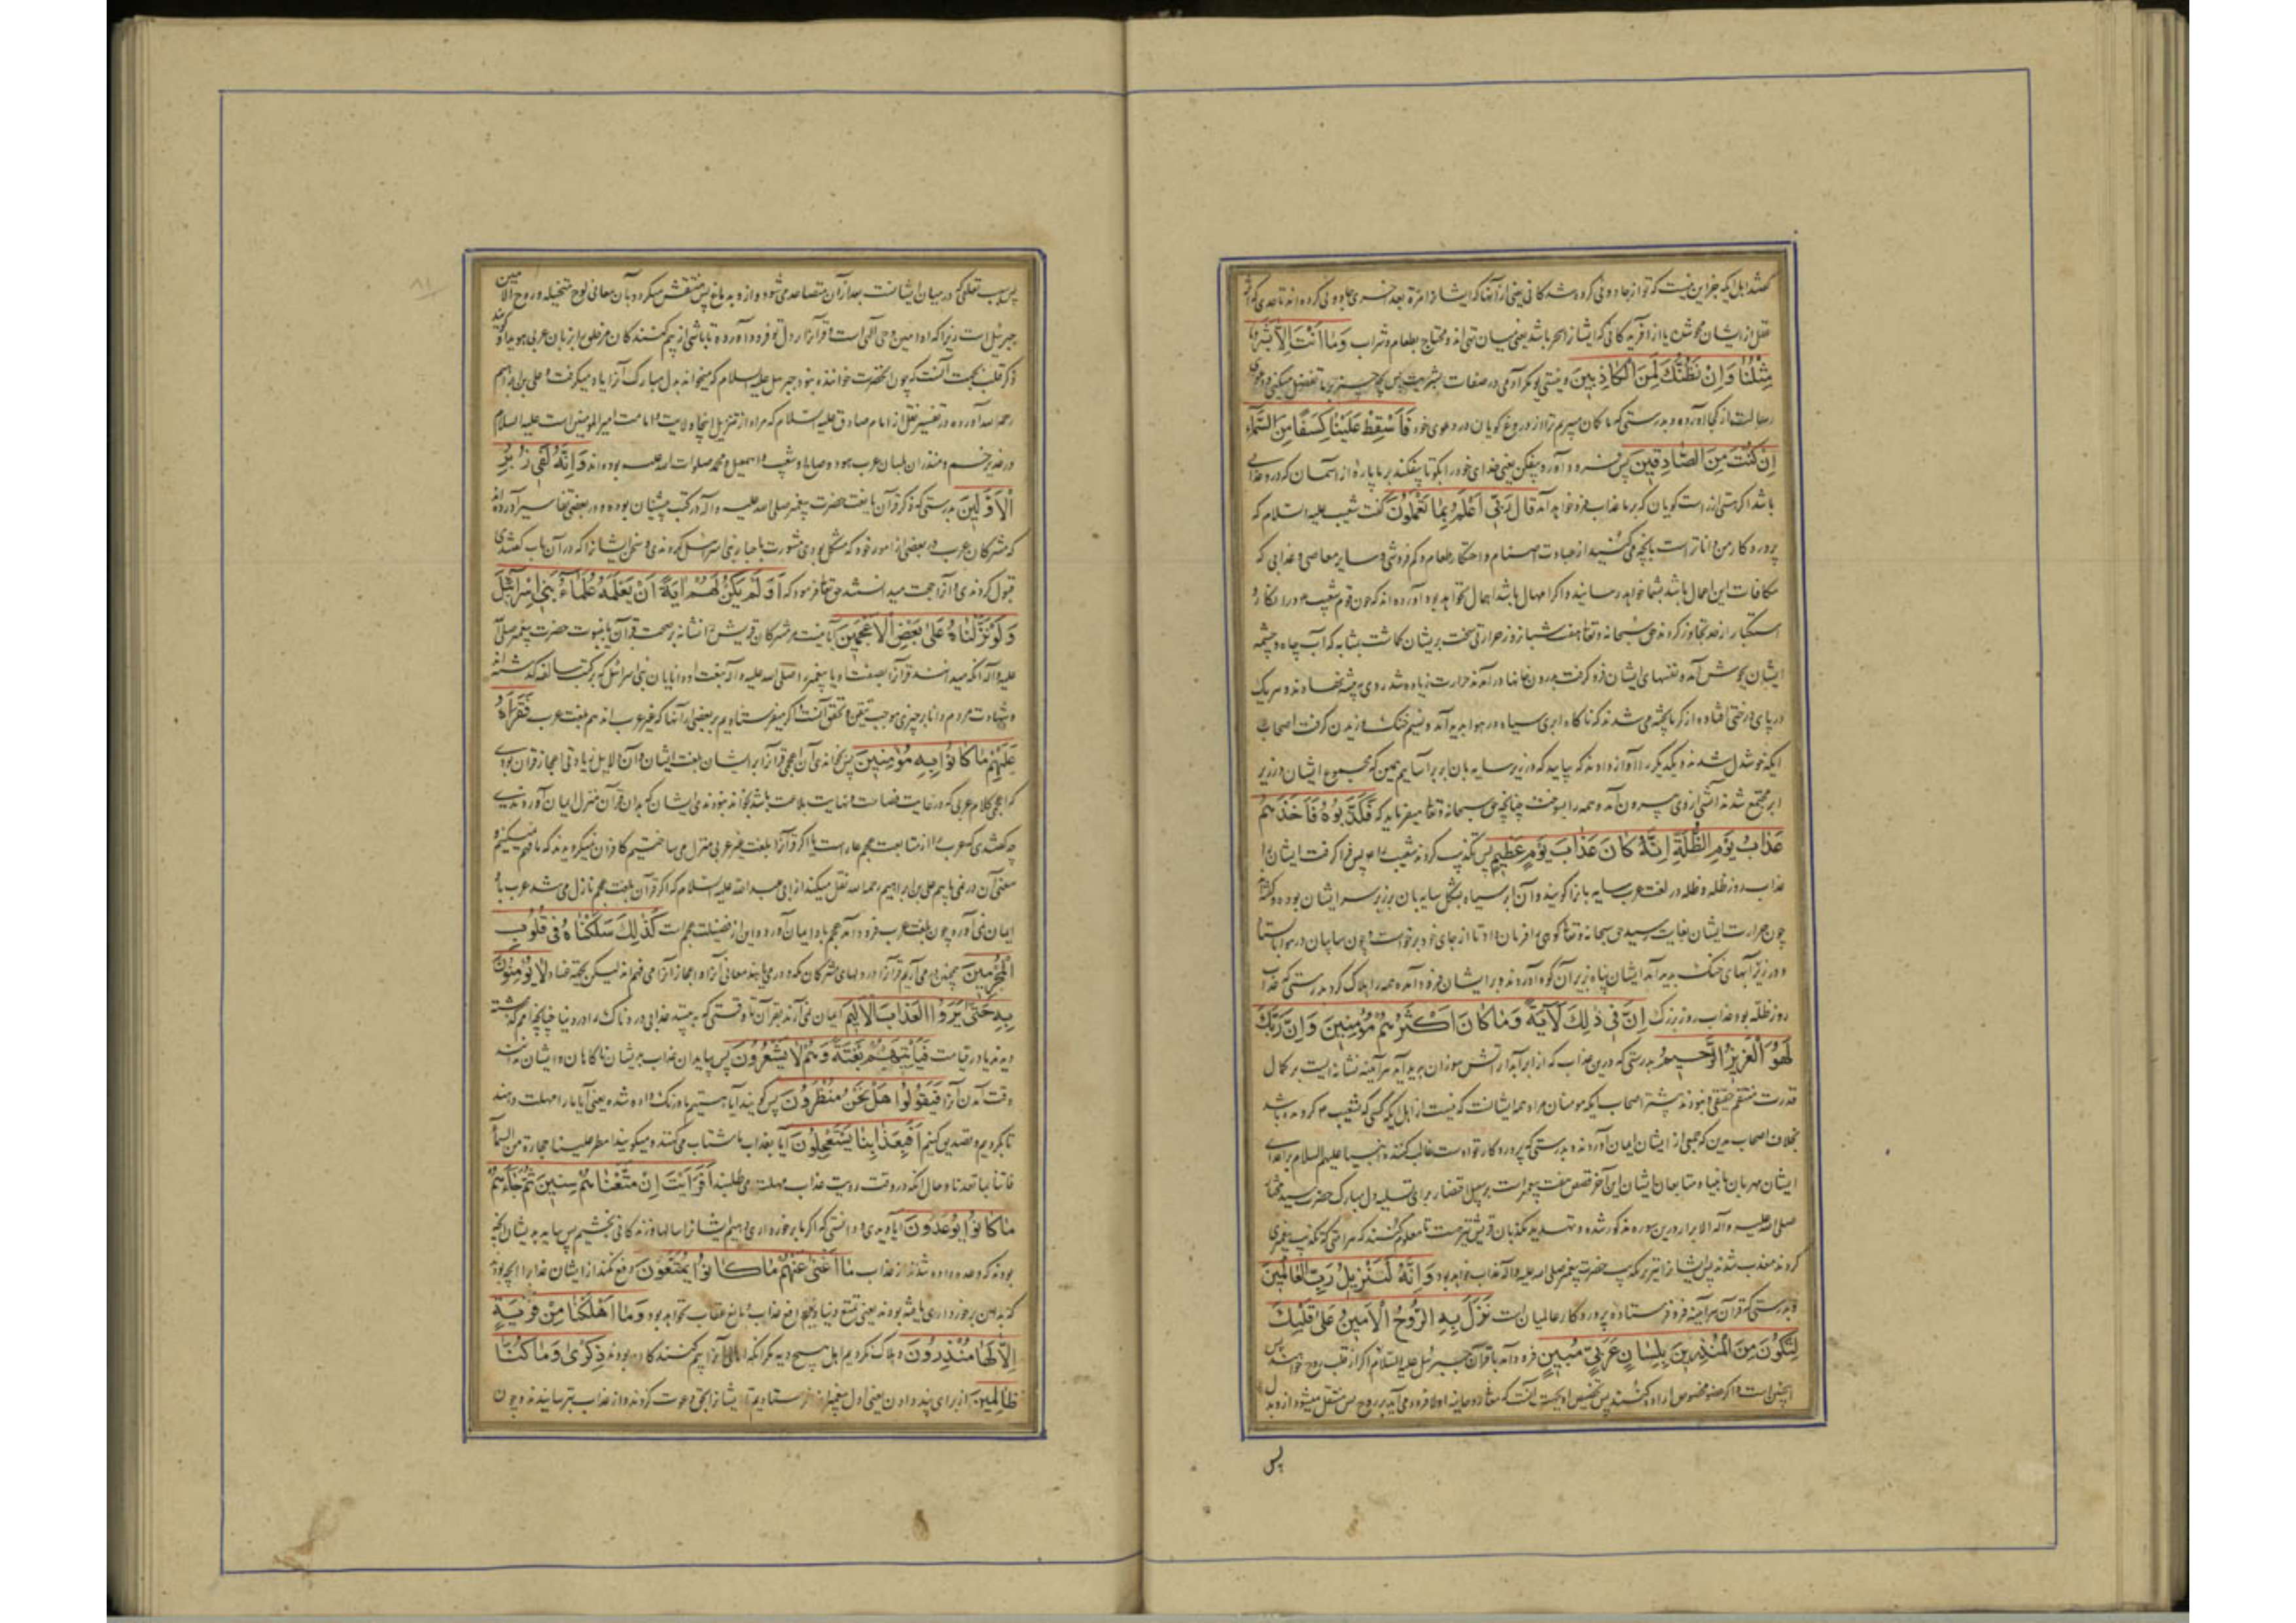 گفتند اهل ایکه جز این نیست که تو از جادوئی کرده شدگانی یعنی از آنها که ایشانرا مرة بعد اخری جادوئی کرده‌اند تا حدی که اثر
عقل از ایشان محو شده یا از آفریدگانی که ایشانرا سحر باشد یعنی میان تهی‌اند و محتاج بطعام و شراب وَمَا أَنْتَ إِلَّا بَشَرٌ
مِثْلُنَا وَإِنْ نَظُنُّكَ لَمِنَ الْكَاذِبِينَ و نیستی تو مگر آدمی در صفات بشریت پس بچه چیز بر ما تفضل میکنی و دعوی
رسالت از کجا آورده و بدرستی که ما گمان میبریم ترا از دروغ گویان در دعوی خود فَأَسْقِطْ عَلَيْنَا كِسَفًا مِنَ السَّمَاءِ
إِنْ كُنْتَ مِنَ الصَّادِقِينَ پس فرود آور و بیفکن یعنی خدای خود را بگو تا بیفکند بر ما پاره از آسمان که درو عذابی
باشد اگر هستی از راست گویان که بر ما عذاب فرو خواهد آمد قَالَ رَبِّي أَعْلَمُ بِمَا تَعْمَلُونَ گفت شعیب علیه السلام که
پروردگار من داناتر است بآنچه می‌کنید از عبادت اصنام و احتکار طعام و کم فروشی و سایر معاصی و عذابی که
مکافات این اعمال باشد بشما خواهد رسانید و اگر امهال باشد اهمال نخواهد بود آورده‌اند که چون قوم شعیب ع در انکار و
استکبار از حد تجاوز کردند حق سبحانه و تعالی هفت شبانروز حرارتی سخت بریشان گماشت بمثابه که آب چاه و چشمه
ایشان بجوش آمده نفسهای ایشان فرو گرفت بدرون خانها در آمدند حرارت زیاده شد روی به بیشه نهادند و هر یک
در پای درختی افتاده از گرما پخته می‌شدند که ناگاه ابری سیاه در هوا پدید آمد و نسیم خنک وزیدن گرفت اصحاب
ایکه خوشدل شدند و یکدیگر را آواز دادند که بیایید که در زیر سایه بان ابر بر آساییم همین که مجموع ایشان در زیر
ابر مجتمع شدند آتشی از وی بیرون آمد و همه را بسوخت چنانچه حق سبحانه و تعالی میفرماید که فَكَذَّبُوهُ فَأَخَذَهُمْ
عَذَابُ يَوْمِ الظُّلَّةِ إِنَّهُ كَانَ عَذَابَ يَوْمٍ عَظِيمٍ پس تکذیب کردند شعیب را ع پس فرا گرفت ایشانرا
عذاب روز ظله و ظله در لغت عرب سایه بانرا گویند و آن ابر سیاه بشکل سایه بان بر زبر سر ایشان بوده و گفته‌اند
چون حرارت ایشان بغایت رسید حق سبحانه و تعالی کوهی را فرمان داد تا از جای خود برخواست و چون سایبان در هوا بایستاد
و در زیر آبهای خنک پدید آمد ایشان پناه بزیر آن کوه آوردند و بر ایشان فرود آمد و همه را هلاک کرد بدرستی که عذاب
روز ظله بود عذاب روز بزرگ إِنَّ فِي ذَلِكَ لَآيَةً وَمَا كَانَ أَكْثَرُهُمْ مُؤْمِنِينَ وَإِنَّ رَبَّكَ
لَهُوَ الْعَزِيزُ الرَّحِيمُ بدرستی که درین عذاب که از ابر آبدار آتش سوزان پدید آید هر آینه نشانه ایست بر کمال
قدرت منتقم حقیقی و نبودند بیشتر اصحاب ایکه مومنان مراد همه ایشانست که نیست از اهل ایکه کسی که بشعیب ع گرویده باشد
بخلاف اصحاب مدین که جمعی از ایشان ایمان آوردند و بدرستی که پروردگار تو اوست غالب کننده انبیا علیهم السلام بر اعدای
ایشان مهربان بانبیاء و متابعان ایشان این آخر قصص هفت پیغمبر است بر سبیل اختصار برای تسلیه دل مبارک حضرت سید مختار
صلی الله علیه و آله الابرار درین سوره مذکور شده و تهدید مکذبان قریش نیز هست تا معلوم کنند که هر امتی که تکذیب پیغمبری
کردند معذب شدند پس ایشانرا نیز بر تکذیب حضرت پیغمبر صلی الله علیه و آله عذاب خواهد بود وَإِنَّهُ لَتَنْزِيلُ رَبِّ الْعَالَمِينَ
و بدرستی که قرآن هر آینه فرو فرستاده پروردگار عالمیان است نَزَلَ بِهِ الرُّوحُ الْأَمِينُ عَلَى قَلْبِكَ
لِتَكُونَ مِنَ الْمُنْذِرِينَ بِلِسَانٍ عَرَبِيٍّ مُبِينٍ فرود آمد با قرآن جبرئیل علیه السلام اگر از قلب روح خواهند پس
اینچنین است و اگر عضو مخصوص اراده کنند پس تخصیص او بجهت آنست که معانی روحانیه اولا فرود می‌آید بر روح پس منتقل میشود ازو بدل
پس
پس بسبب تعلقی که در میان ایشانست بعد از آن متصاعد می‌شود ازو بدماغ پس منتقش میگردد بآن معانی لوح متخیله و روح الامین
جبرئیل است زیرا که او امین وحی الهی است و قرآنرا بر دل تو فرود آورده تا باشی از بیم کنندگان مر خلق را بزبان عربی هویدا گویند
ذکر قلب بجهت آنست که چون آنحضرت خواننده نبود جبرئیل علیه السلام که میخواند بدل مبارک آنرا یاد میگرفت و علی بن ابراهیم
رحمه الله آورده در تفسیر نقل از امام صادق علیه السلام که مراد از تنزیل اینجا ولایت و امامت امیر المومنین است علیه السلام
در غدیر خم و منذران بلسان عرب هود و صالح و شعیب و اسمعیل و محمد صلوات الله علیهم بوده‌اند وَإِنَّهُ لَفِي زُبُرِ
الْأَوَّلِينَ بدرستی که ذکر قرآن یا نعت حضرت پیغمبر صلی الله علیه و آله در کتب پیشینیان بوده و در بعضی تفاسیر آورده‌اند
که مشرکان عرب در بعضی از امور خود که مشکل بودی مشورت باحبار بنی اسرائیل کردندی و سخن ایشانرا که در آن باب گفتندی
قبول کردندی و آنرا حجت میدانستند حق تعالی فرمود که أَوَلَمْ يَكُنْ لَهُمْ آيَةً أَنْ يَعْلَمَهُ عُلَمَاءُ بَنِي إِسْرَائِيلَ
وَلَوْ نَزَّلْنَاهُ عَلَى بَعْضِ الْأَعْجَمِينَ آیا نیست مر مشرکان قریش را نشانه بر صحت قرآن یا نبوت حضرت پیغمبر صلی الله
علیه و آله آنکه میدانند قرآنرا بصفت او یا پیغمبر را صلی الله علیه و آله بنعت او دانایان بنی اسرائیل که بر کتب سالفه گذشته‌اند
و شهادت مردم دانا بر چیزی موجب تیقن و تحقق آنست و اگر میفرستادیم بر بعضی از آنها که غیر عرب‌اند هم بلغت عرب فَقَرَأَهُ
عَلَيْهِمْ مَا كَانُوا بِهِ مُؤْمِنِينَ پس خواندی آن اعجمی قرآنرا بر ایشان بلغت ایشان و آن دلایل زیادتی اعجاز قرآن بودی
که اعجمی کلام عربی که در غایت فصاحت و نهایت بلاغت باشد بخواند نبودندی ایشان که بدان قرآن منزل ایمان آوردندی
چه گفتندی که عرب را از متابعت عجم عار است یا اگر قرآنرا بلغت غیر عربی منزل می‌ساختیم کافران میگرویدند که ما فهم نمیکنیم
معنی آن در نمی‌یابیم علی بن ابراهیم رحمه الله نقل میکند از ابی عبد الله علیه السلام که اگر قرآن بلغت عجم نازل می‌شد عرب باو
ایمان نمی‌آورد چون بلغت عرب فرود آمد عجم باو ایمان آورد و این از فضیلت عجم است كَذَلِكَ سَلَكْنَاهُ فِي قُلُوبِ
الْمُجْرِمِينَ همچنین در می‌آریم قرآنرا در دلهای مشرکان مکه و در می‌یابند معانی آنرا و اعجاز آنرا می‌فهمند لیکن بجهت عناد لَا يُؤْمِنُونَ
بِهِ حَتَّى يَرَوُا الْعَذَابَ الْأَلِيمَ ایمان نمی‌آرند بقرآن تا وقتی که به بینند عذابی دردناک را در دنیا چنانچه امم گذشته
دیدند یا در قیامت فَيَأْتِيَهُمْ بَغْتَةً وَهُمْ لَا يَشْعُرُونَ پس بیاید آن عذاب بریشان ناگاهان و ایشان ندانند
وقت آمدن آنرا فَيَقُولُوا هَلْ نَحْنُ مُنْظَرُونَ پس گویند آیا هستیم ما درنگ داده شده یعنی آیا ما را مهلت دهند
تا بگرویم و تصدیق کنیم أَفَبِعَذَابِنَا يَسْتَعْجِلُونَ آیا بعذاب ما شتاب می‌کنند و میگویند امطر علینا حجارة من السماء
فاتنا بما تعدنا و حال آنکه در وقت رویت عذاب مهلت می‌طلبند أَفَرَأَيْتَ إِنْ مَتَّعْنَاهُمْ سِنِينَ ثُمَّ جَاءَهُمْ
مَا كَانُوا يُوعَدُونَ آیا دیدی و دانستی که اگر ما برخورداری دهیم ایشانرا سالها و زندگانی بخشیم پس بیاید بدیشان آنچه
بودند که وعده داده شدند از عذاب مَا أَغْنَى عَنْهُمْ مَا كَانُوا يُمَتَّعُونَ دفع نکند از ایشان عذاب را آنچه بودند
که بدان برخورداری یافته بودند یعنی تمتع دنیا دافع عذاب و مانع عقاب نخواهد بود وَمَا أَهْلَكْنَا مِنْ قَرْيَةٍ
إِلَّا لَهَا مُنْذِرُونَ و هلاک نکردیم اهل هیچ دیه مگر آنکه اهالی آنرا بیم کنندگان بودند ذِكْرَى وَمَا كُنَّا
ظَالِمِينَ از برای پند دادن یعنی اول پیغمبران فرستادیم تا ایشانرا بحق دعوت کردند و از عذاب بترسانیدند و چون